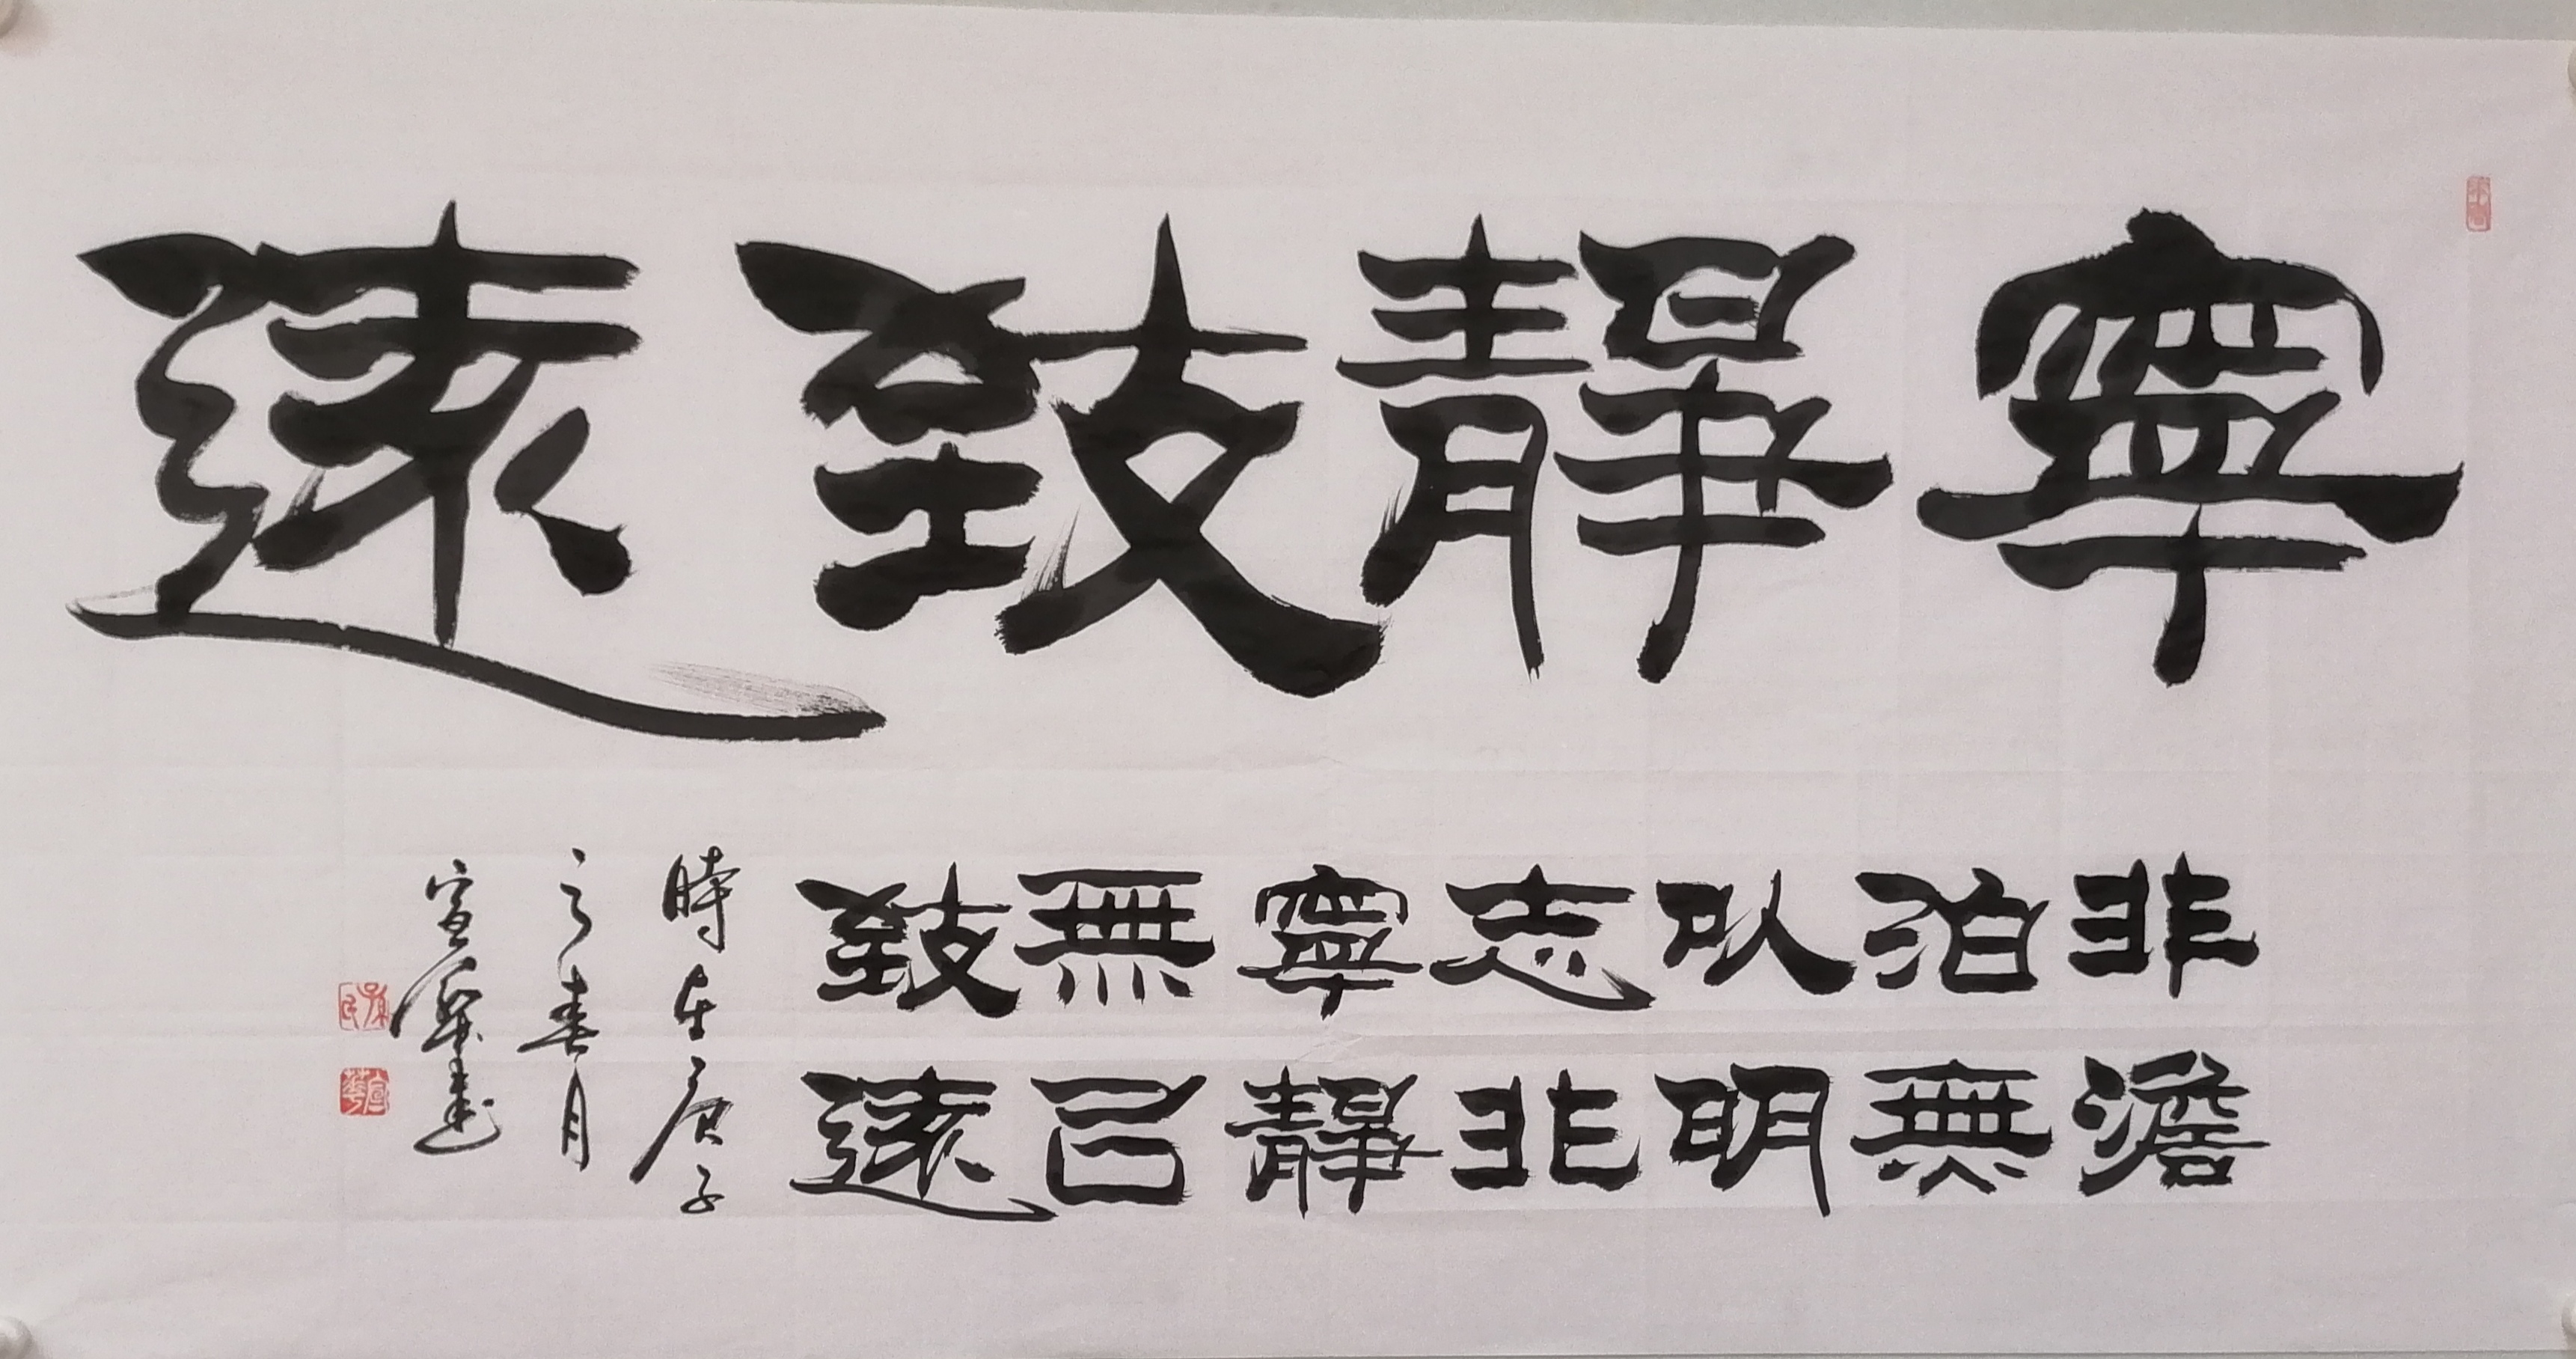 寧靜致遠
非澹
泊無
以明
志非
寧靜
無㠯
致遠
時在庚子
之春月
宣華書